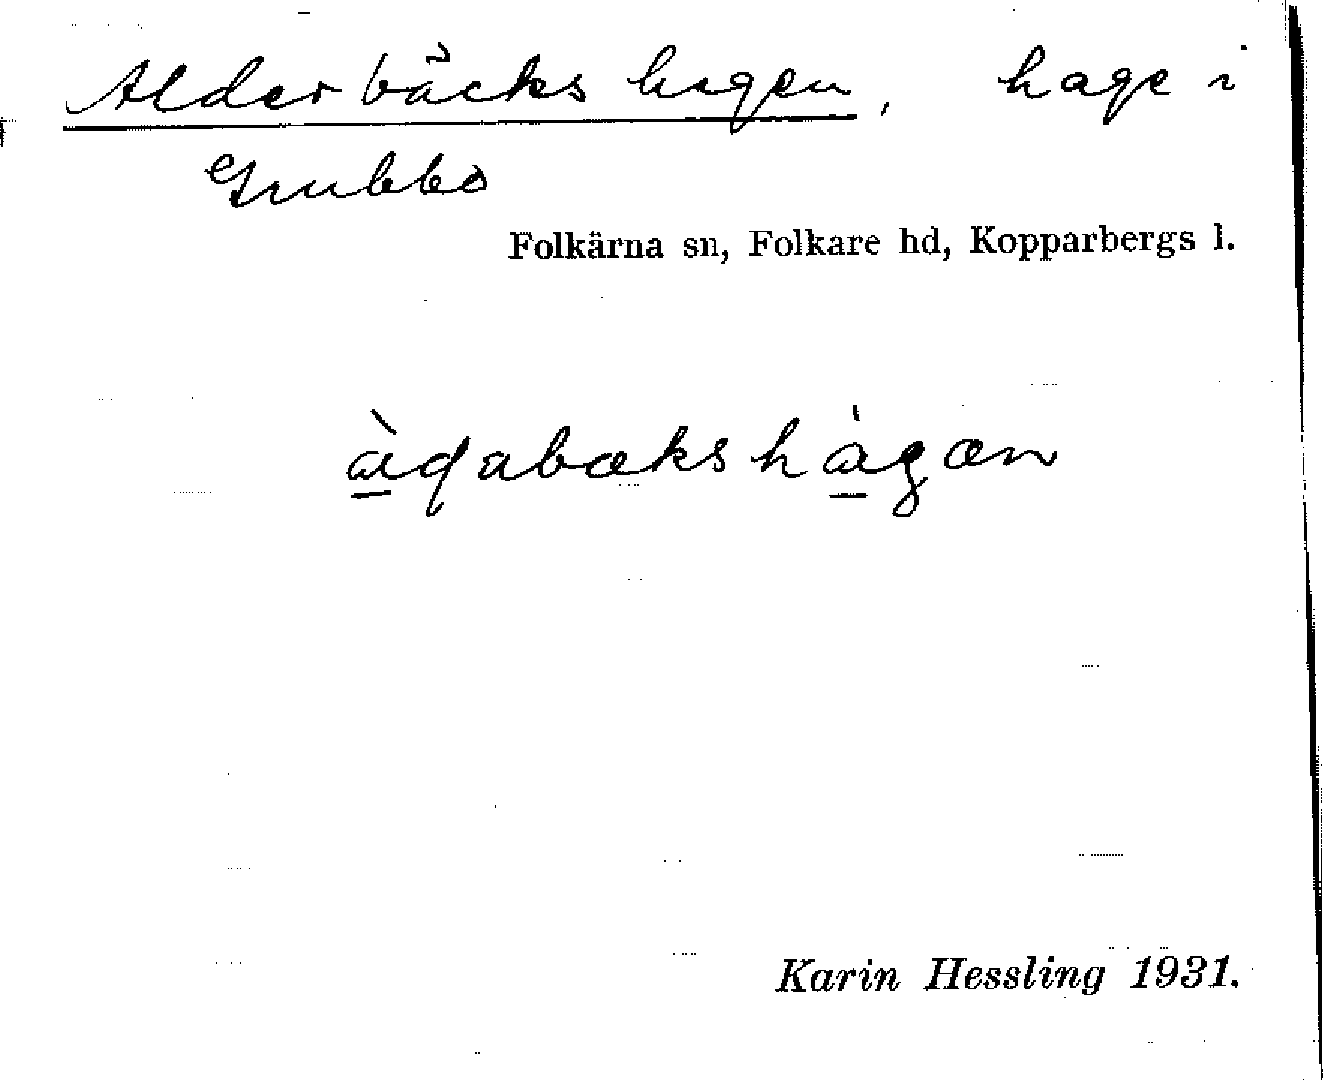 Alderbäckshagen, hage i
Grubbo
Folkärna sn, Folkare hd, Kopparbergs l.
Karin Hessling 1931.